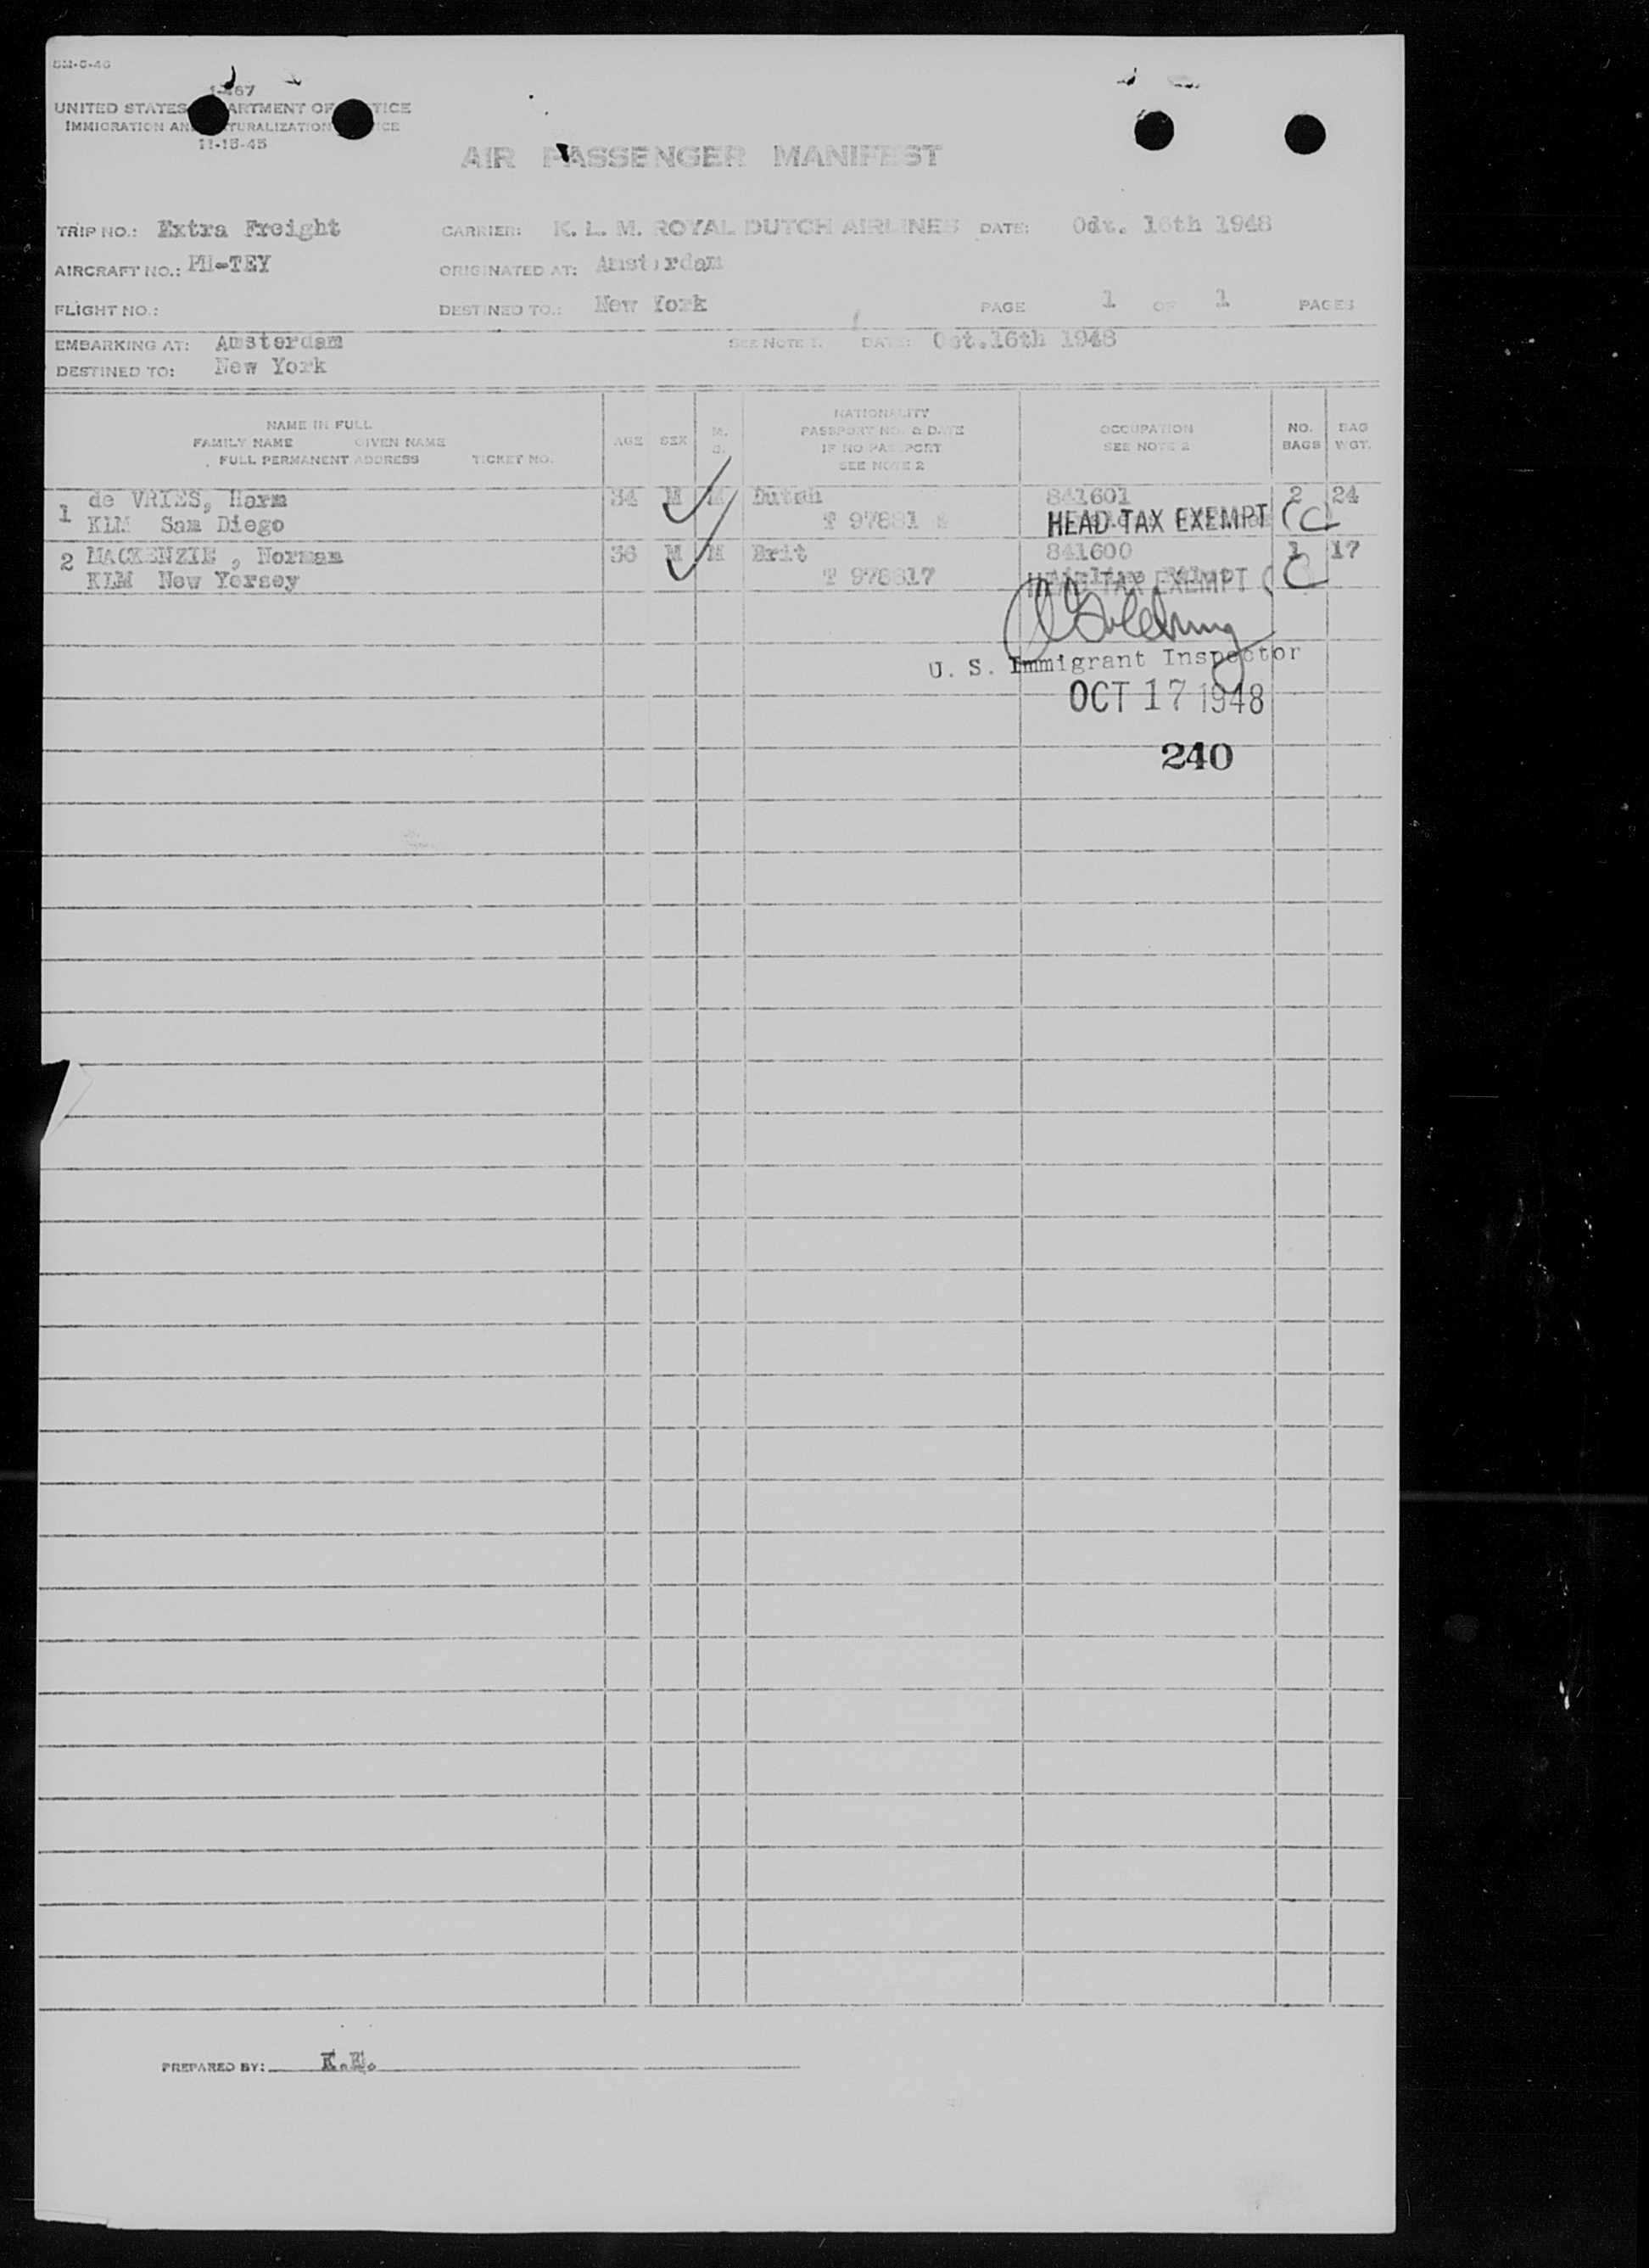 1-467
UNITED STATES DEPARTMENT OF JUSTICE
IMMIGRATION AND NATURALIZATION SERVICE
11-15-45
AIR PASSENGER MANIFEST
TRIP NO.: Extra Freight CARRIER: K. L. M. ROYAL DUTCH AIRLINES DATE: Odt. 16th 1948
AIRCRAFT NO.: PH-TEY ORIGINATED AT: Amsterdam
FLIGHT NO.: DESTINED TO.: New York PAGE 1 OF 1 PAGES
EMBARKING AT: Amsterdam SEE NOTE 1. DATE: Oct.16th 1948
DESTINED TO: New York
NAME IN FULL
FAMILY NAME GIVEN NAME
FULL PERMANENT ADDRESS TICKET NO.
AGE SEX M. S.
NATIONALITY
PASSPORT NO. & DATE
IF NO PASSPORT
SEE NOTE 2
OCCUPATION
SEE NOTE 2
NO.
BAGS
BAG
WGT.
1 de VRIES, Harm 34 M M Dutch 841601 2 24
KLM San Diego HEAD TAX EXEMPT (C
2 MACKENZIE , Norman 36 M M Brit 841600 1 17
KLM New Yersey T 978617 HEAD TAX EXEMPT (C
U. S. Immigrant Inspector
OCT 17 1948
240
PREPARED BY: K.E.